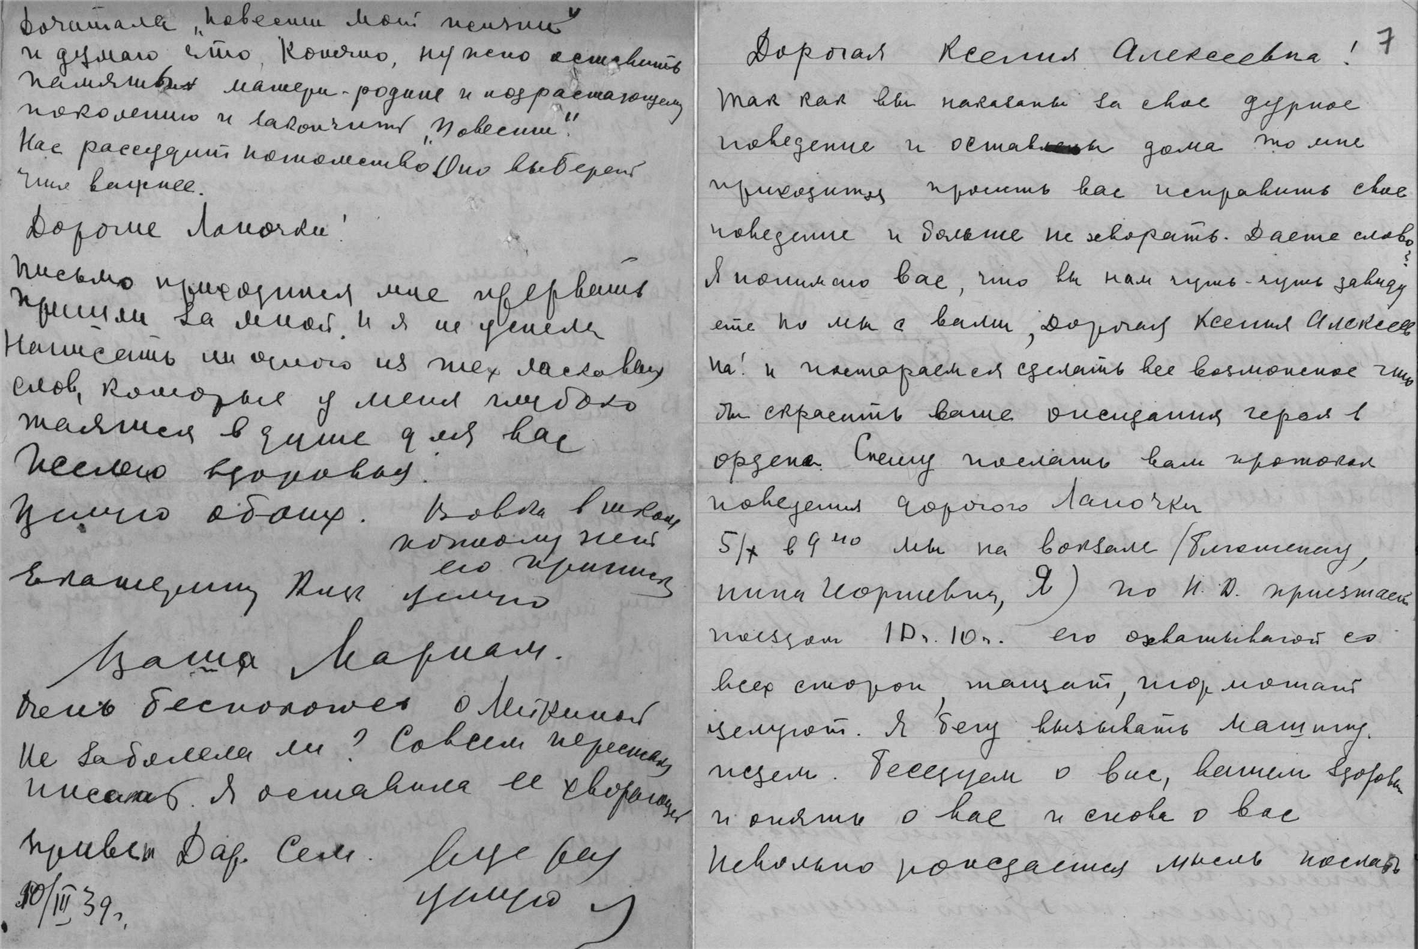 Дочитала „Повести моей жизни"
и думаю что, конечно, нужно оставить
памятник матери-родине и подрастающему
поколению и закончить „Повести".
Нас рассудит потомство. Оно выберет
что важнее.
Дорогие Лапочки!
Письмо приходится мне прервать
пришли за мной и я не успела
написать ни одного из тех ласковых
слов, которые у меня глубоко
таятся в душе для вас
Желаю здоровья.
Целую обоих. Вовка в школе
потому нет
его приписки
Екатерину целую
Ваша Мариам.
Очень беспокоюсь о
Не заболела ли? Совсем перестала
писать. Я оставила ее хворающей
Привет Дар. Сем. Еще раз
целую
10/III 39 г.
7
Дорогая Ксения Алексеевна!
Так как вы наказаны за свое дурное
поведение и оставлены дома то мне
приходится просить вас исправить свое
поведение и больше не хворать. Даете слово?
Я понимаю вас, что вы нам чуть-чуть завиду
ете но мы с вами, Дорогая Ксения Алексеев
на! и постараемся сделать все возможное что
бы скрасить ваше ожидания героя в
ордена. Спешу послать вам протокол
поведения дорогого Лапочки
5/X в 9 40 мы на вокзале (
Нина Георгиевна, Я) но Н. А. приезжает
поездом 10 ч. 10 м. его охватывают со
всех сторон, тащат, тормошат
целуют. Я бегу вызывать машину.
едем. Беседуем о вас, вашем здоровьи
и опять о вас и снова о вас
Невольно рождается мысль послать